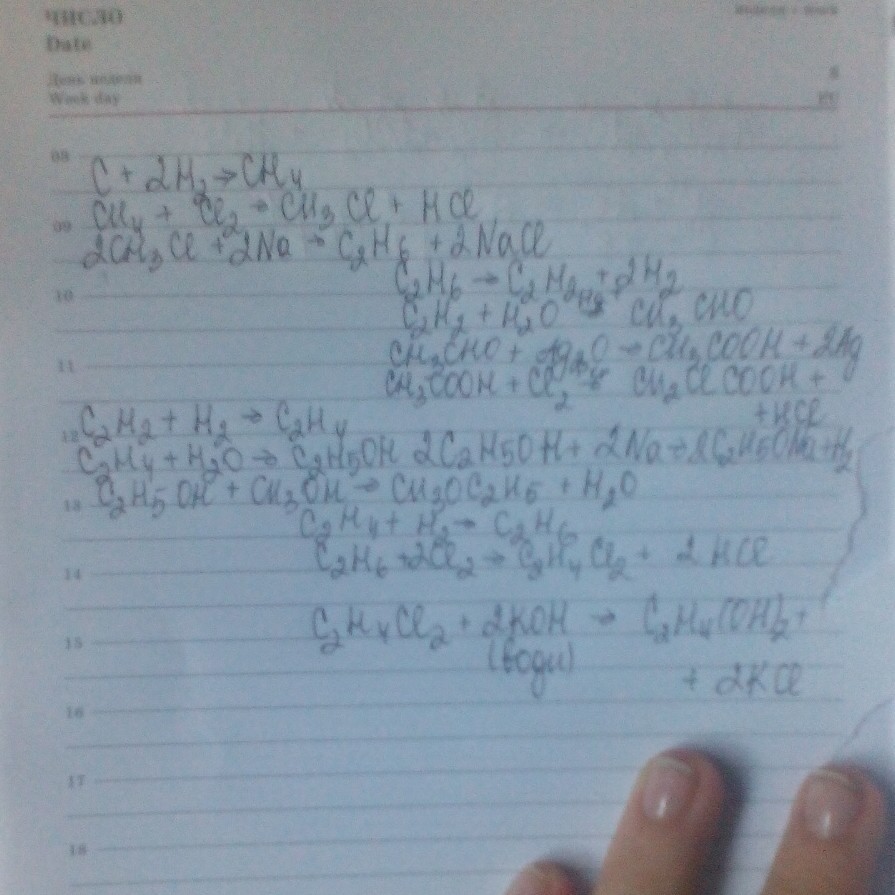 ЧИСЛО
Date
День недели
Week day
08
C + 2H₂ → CH₄
CH₄ + Cl₂ → CH₃Cl + HCl
09
2CH₃Cl + 2Na → C₂H₆ + 2NaCl
C₂H₆ → C₂H₂ + 2H₂
10
C₂H₂ + H₂O → CH₃CHO
CH₃CHO + Ag₂O → CH₃COOH + 2Ag
11
CH₃COOH + Cl₂ → CH₂ClCOOH +
+ HCl
C₂H₂ + H₂ → C₂H₄
12
C₂H₄ + H₂O → C₂H₅OH 2C₂H5OH + 2Na → 2C₂H5ONa + H₂
C₂H₅OH + CH₃OH → CH₃OC₂H₅ + H₂O
13
C₂H₄ + H₂ → C₂H₆
C₂H₆ + 2Cl₂ → C₂H₄Cl₂ + 2HCl
14
C₂H₄Cl₂ + 2KOH → C₂H₄(OH)₂ +
15
(водн)
+ 2KCl
16
17
18